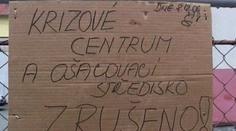 KRIZOVÉ
CENTRUM
A OŠACOVACÍ
STŘEDISKO
ZRUŠENO!